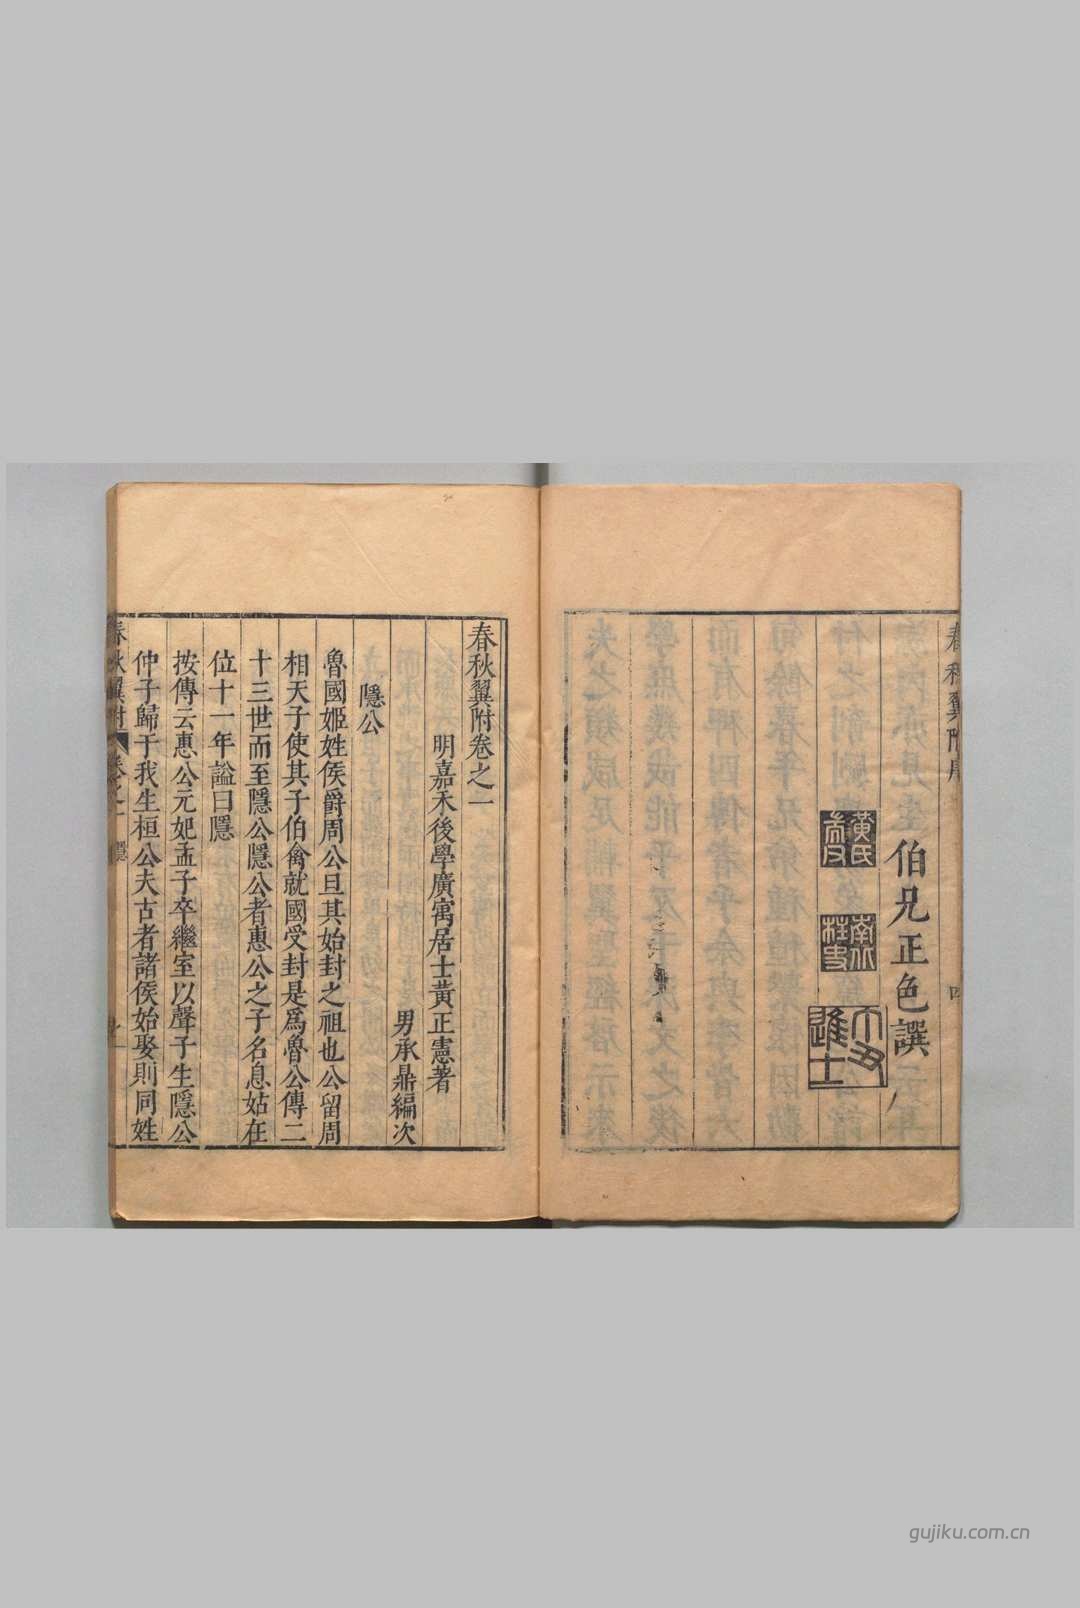 伯兄正色譔
黃氏
進士
春秋翼附卷之一
明嘉禾後學廣寓居士黃正憲著
男承鼎編次
隱公
魯國姬姓侯爵周公旦其始封之祖也公留周
相天子使其子伯禽就國受封是爲魯公傳二
十三世而至隱公隱公者惠公之子名息姑在
位十一年謚曰隱
按傳云惠公元妃孟子卒繼室以聲子生隱公
仲子歸于我生桓公夫古者諸侯始娶則同姓
春秋翼附 卷之一 隱
gujiku.com.cn